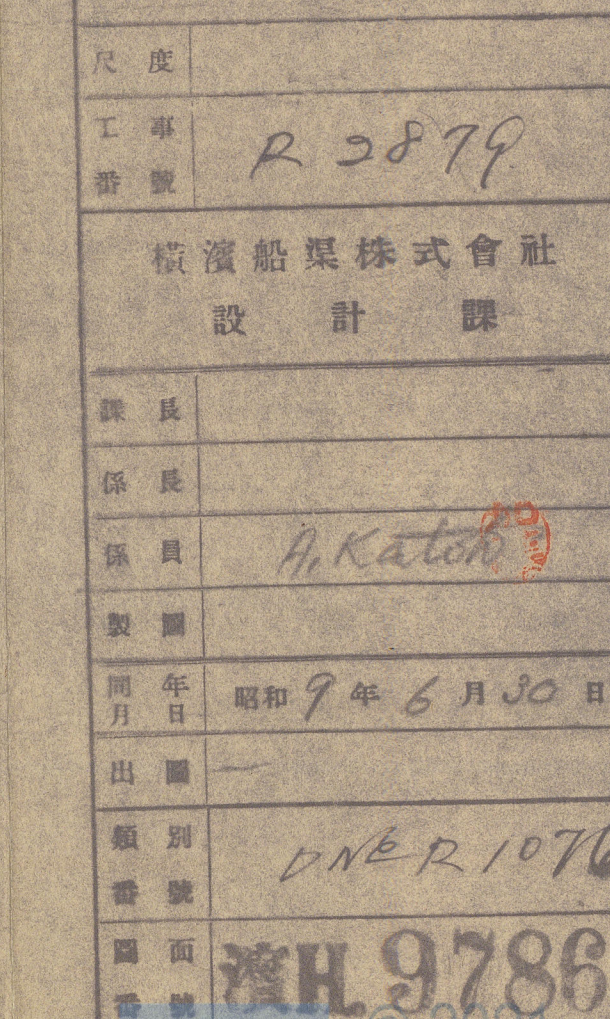 尺度
工事番號 R 2879
横濱船渠株式會社
設計課
課長
係長
係員 A. Katoh
製圖
同年月日 昭和9年6月30日
出圖 —
類別番號 DNE R 1076
圖面番號 濱H. 9786